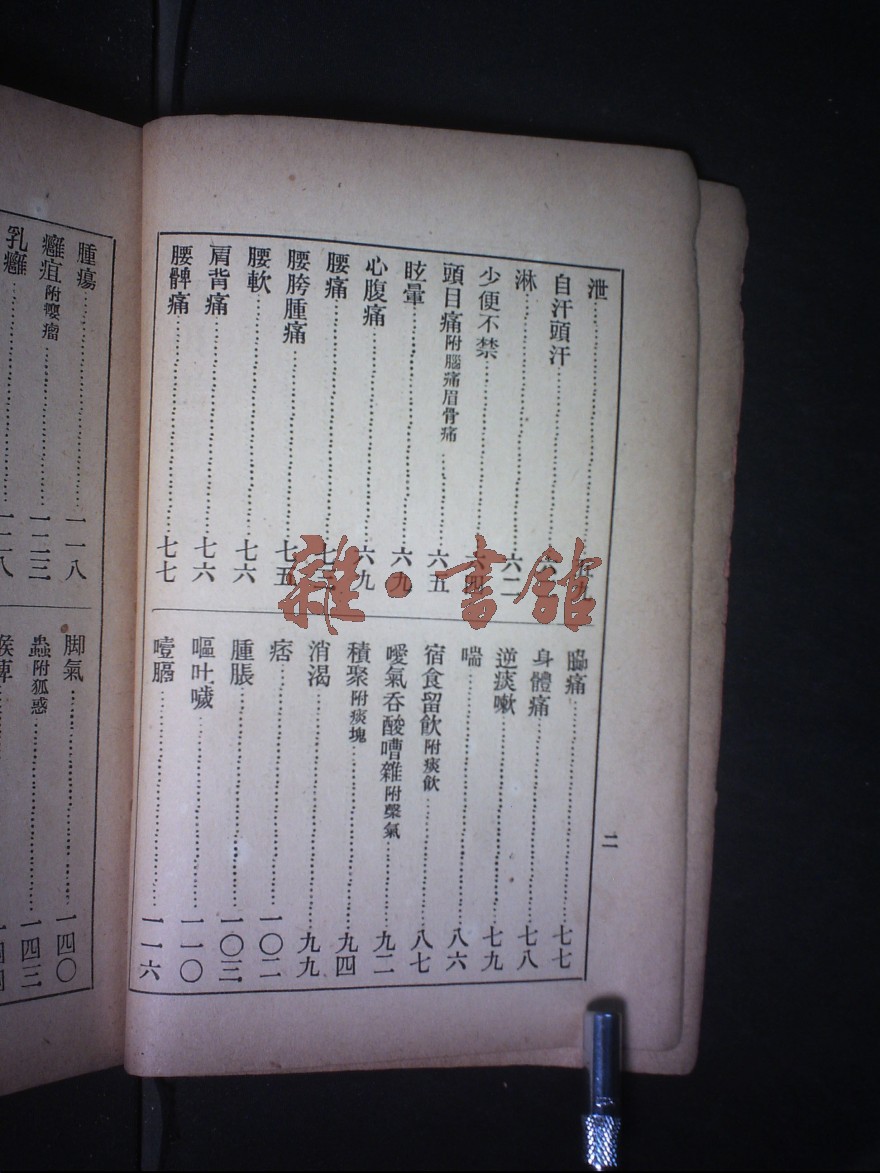 泄……五九
自汗頭汗……六
淋……六二
少便不禁……六四
頭目痛附腦痛眉骨痛……六五
眩暈……六九
心腹痛……六九
腰痛……七三
腰胯腫痛……七五
腰軟……七六
肩背痛……七六
腰髀痛……七七
脇痛……七七
身體痛……七八
逆痰嗽……七九
喘……八六
宿食留飲附痰飲……八七
噯氣吞酸嘈雜附聲氣……九二
積聚附痰塊……九四
消渴……九九
痞……一〇二
腫脹……一〇三
嘔吐噦……一一〇
噎膈……一一六
二
腫瘍……一一八
癰疽附癭瘤……一二三
乳癰……一二八
脚氣……一四〇
蟲附狐惑……一四三
雜·書館